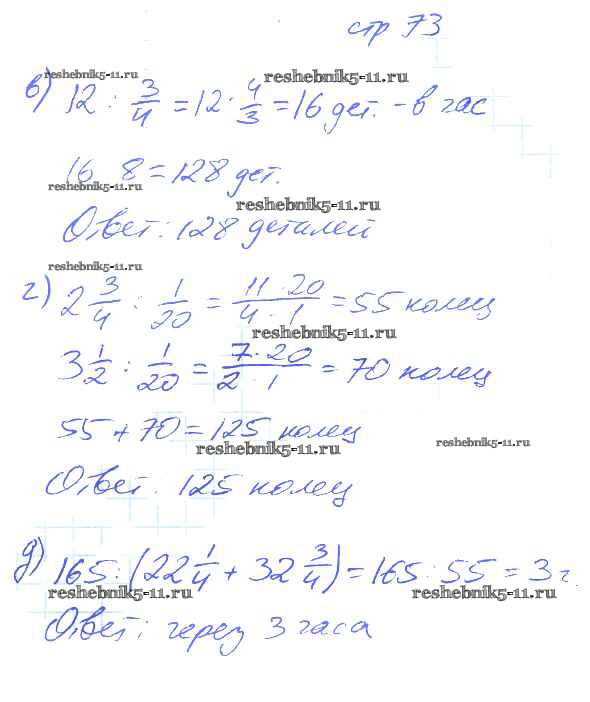 стр 73
reshebnik5-11.ru reshebnik5-11.ru
в) 12 : 3/4 = 12 · 4/3 = 16 дет. - в час
16 8 = 128 дет.
reshebnik5-11.ru
reshebnik5-11.ru
Ответ: 128 деталей
reshebnik5-11.ru
г) 2 3/4 : 1/20 = 11 · 20 / 4 · 1 = 55 колец
reshebnik5-11.ru
3 1/2 : 1/20 = 7 · 20 / 2 · 1 = 70 колец
55 + 70 = 125 колец
reshebnik5-11.ru reshebnik5-11.ru
Ответ. 125 колец
д) 165 : (22 1/4 + 32 3/4) = 165 : 55 = 3 ч.
reshebnik5-11.ru reshebnik5-11.ru
Ответ: через 3 часа